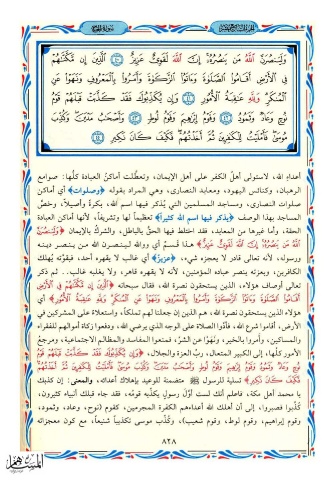 وَلَيَنصُرَنَّ ٱللَّهُ مَن يَنصُرُهُۥٓ إِنَّ ٱللَّهَ لَقَوِيٌّ عَزِيزٌ ﴿٤٠﴾ ٱلَّذِينَ إِن مَّكَّنَّٰهُمْ
فِي ٱلْأَرْضِ أَقَامُوا۟ ٱلصَّلَوٰةَ وَءَاتَوُا۟ ٱلزَّكَوٰةَ وَأَمَرُوا۟ بِٱلْمَعْرُوفِ وَنَهَوْا۟ عَنِ
ٱلْمُنكَرِ وَلِلَّهِ عَٰقِبَةُ ٱلْأُمُورِ ﴿٤١﴾ وَإِن يُكَذِّبُوكَ فَقَدْ كَذَّبَتْ قَبْلَهُمْ قَوْمُ
نُوحٍ وَعَادٌ وَثَمُودُ ﴿٤٢﴾ وَقَوْمُ إِبْرَٰهِيمَ وَقَوْمُ لُوطٍ ﴿٤٣﴾ وَأَصْحَٰبُ مَدْيَنَ وَكُذِّبَ
مُوسَىٰ فَأَمْلَيْتُ لِلْكَٰفِرِينَ ثُمَّ أَخَذْتُهُمْ فَكَيْفَ كَانَ نَكِيرِ ﴿٤٤﴾
أعداء الله، لاستولى أهلُ الكفر على أهل الإيمان، وتعطَّلت أماكنُ العبادة كلُّها: صوامع
الرهبان، وكنائس اليهود، ومعابد النصارى، وهي المراد بقوله ﴿وصلوات﴾ أي أماكن
صلوات النصارى، ومساجد المسلمين التي يُذكر فيها اسم الله، بكرةً وأصيلاً، وخصَّ
المساجد بهذا الوصف ﴿يذكر فيها اسم الله كثيراً﴾ تعظيماً لها وتشريفاً، لأنها أماكن العبادة
الحقَّة، وأما غيرها من المعابد، فقد اختلط فيها الحقُّ بالباطل، والشركُ بالإيمان ﴿وَلَيَنصُرَنَّ
ٱللَّهُ مَن يَنصُرُهُۥٓ إِنَّ ٱللَّهَ لَقَوِيٌّ عَزِيزٌ﴾ هذا قسمٌ أي ووالله لينصرنَّ الله من ينصر دينه
ورسوله، لأنه تعالى قادر لا يعجزه شيء، ﴿عزيز﴾ أي غالب لا يقهره أحد، فبقوَّته يُهلك
الكافرين، وبعزته ينصر عباده المؤمنين، لأنه لا يقهره قاهر، ولا يغلبه غالب.. ثم ذكر
تعالى أوصاف هؤلاء، الذين يستحقون نصرة الله، فقال سبحانه ﴿ٱلَّذِينَ إِن مَّكَّنَّٰهُمْ فِي ٱلْأَرْضِ
أَقَامُوا۟ ٱلصَّلَوٰةَ وَءَاتَوُا۟ ٱلزَّكَوٰةَ وَأَمَرُوا۟ بِٱلْمَعْرُوفِ وَنَهَوْا۟ عَنِ ٱلْمُنكَرِ وَلِلَّهِ عَٰقِبَةُ ٱلْأُمُورِ﴾ أي
هؤلاء الذين يستحقون نصرة الله، هم الذين إن جعلنا لهم تملكاً، واستعلاءً على المشركين في
الأرض، أقاموا شرع الله، فأدَّوا الصلاة على الوجه الذي يرضي الله، ودفعوا زكاة أموالهم للفقراء
والمساكين، وأمروا بالخير، ونهَوْا عن الشرِّ، فمنعوا المفاسد والمظالم الاجتماعية، ومرجعُ
الأمور كلِّها، إلى الكبير المتعال، ربِّ العزة والجلال، ﴿وَإِن يُكَذِّبُوكَ فَقَدْ كَذَّبَتْ قَبْلَهُمْ قَوْمُ
نُوحٍ وَعَادٌ وَثَمُودُ وَقَوْمُ إِبْرَٰهِيمَ وَقَوْمُ لُوطٍ وَأَصْحَٰبُ مَدْيَنَ وَكُذِّبَ مُوسَىٰ فَأَمْلَيْتُ لِلْكَٰفِرِينَ ثُمَّ أَخَذْتُهُمْ
فَكَيْفَ كَانَ نَكِيرِ﴾ تسلية للرسول ﷺ متضمنة للوعيد بإهلاك أعدائه، والمعنى: إن كذبك
يا محمد أهل مكة، فاعلم أنك لست أوَّل رسول يكذِّبه قومُه، فقد جاء قبلك أنبياء كثيرون،
كُذِّبوا فصبروا، إلى أن أهلك الله أعداءهم الكفرة المجرمين، كقوم (نوح، وعاد، وثمود،
وقوم إبراهيم، وقوم لوط، وقوم شعيب)، وكُذِّب موسى تكذيباً شنيعاً، مع كون معجزاته
٨٢٨